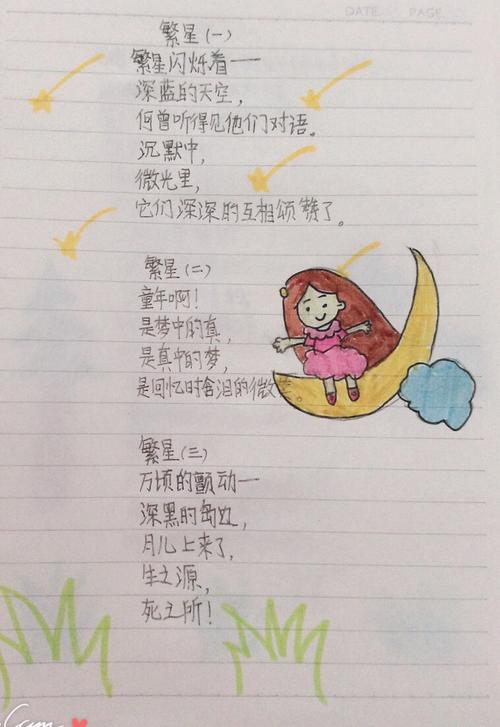 DATE PAGE
繁星(一)
繁星闪烁着——
深蓝的天空,
何曾听得见他们对语。
沉默中,
微光里,
它们深深的互相颂赞了。
繁星(二)
童年啊!
是梦中的真,
是真中的梦,
是回忆时含泪的微笑。
繁星(三)
万顷的颤动——
深黑的岛边,
月儿上来了,
生之源,
死之所!